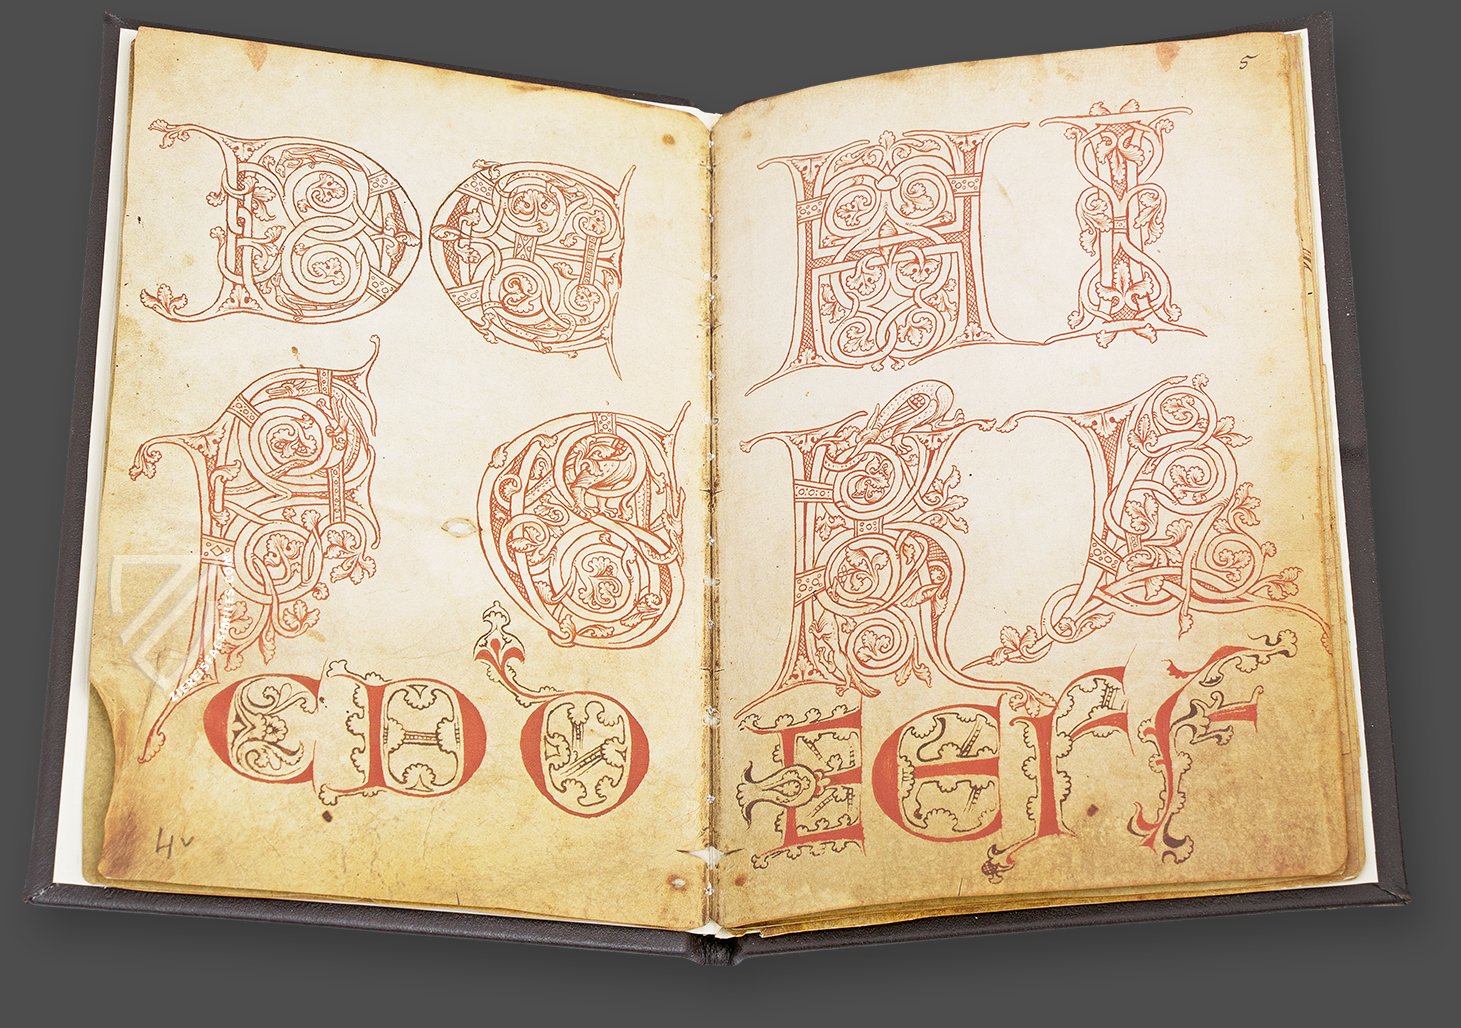 D E
F G
C D O
4v
5
H I
K L
E E F F